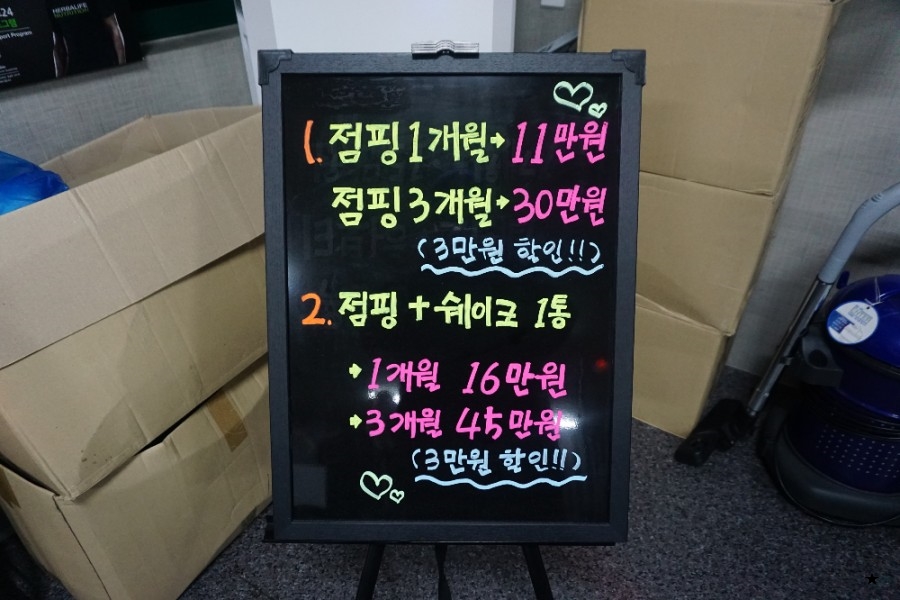 24
그램
port Program
HERBALIFE
NUTRITION
1. 점핑 1개월→11만원
점핑 3개월→30만원
(3만원 할인!!)
2. 점핑 + 쉐이크 1통
→1개월 16만원
→3개월 45만원
(3만원 할인!!)